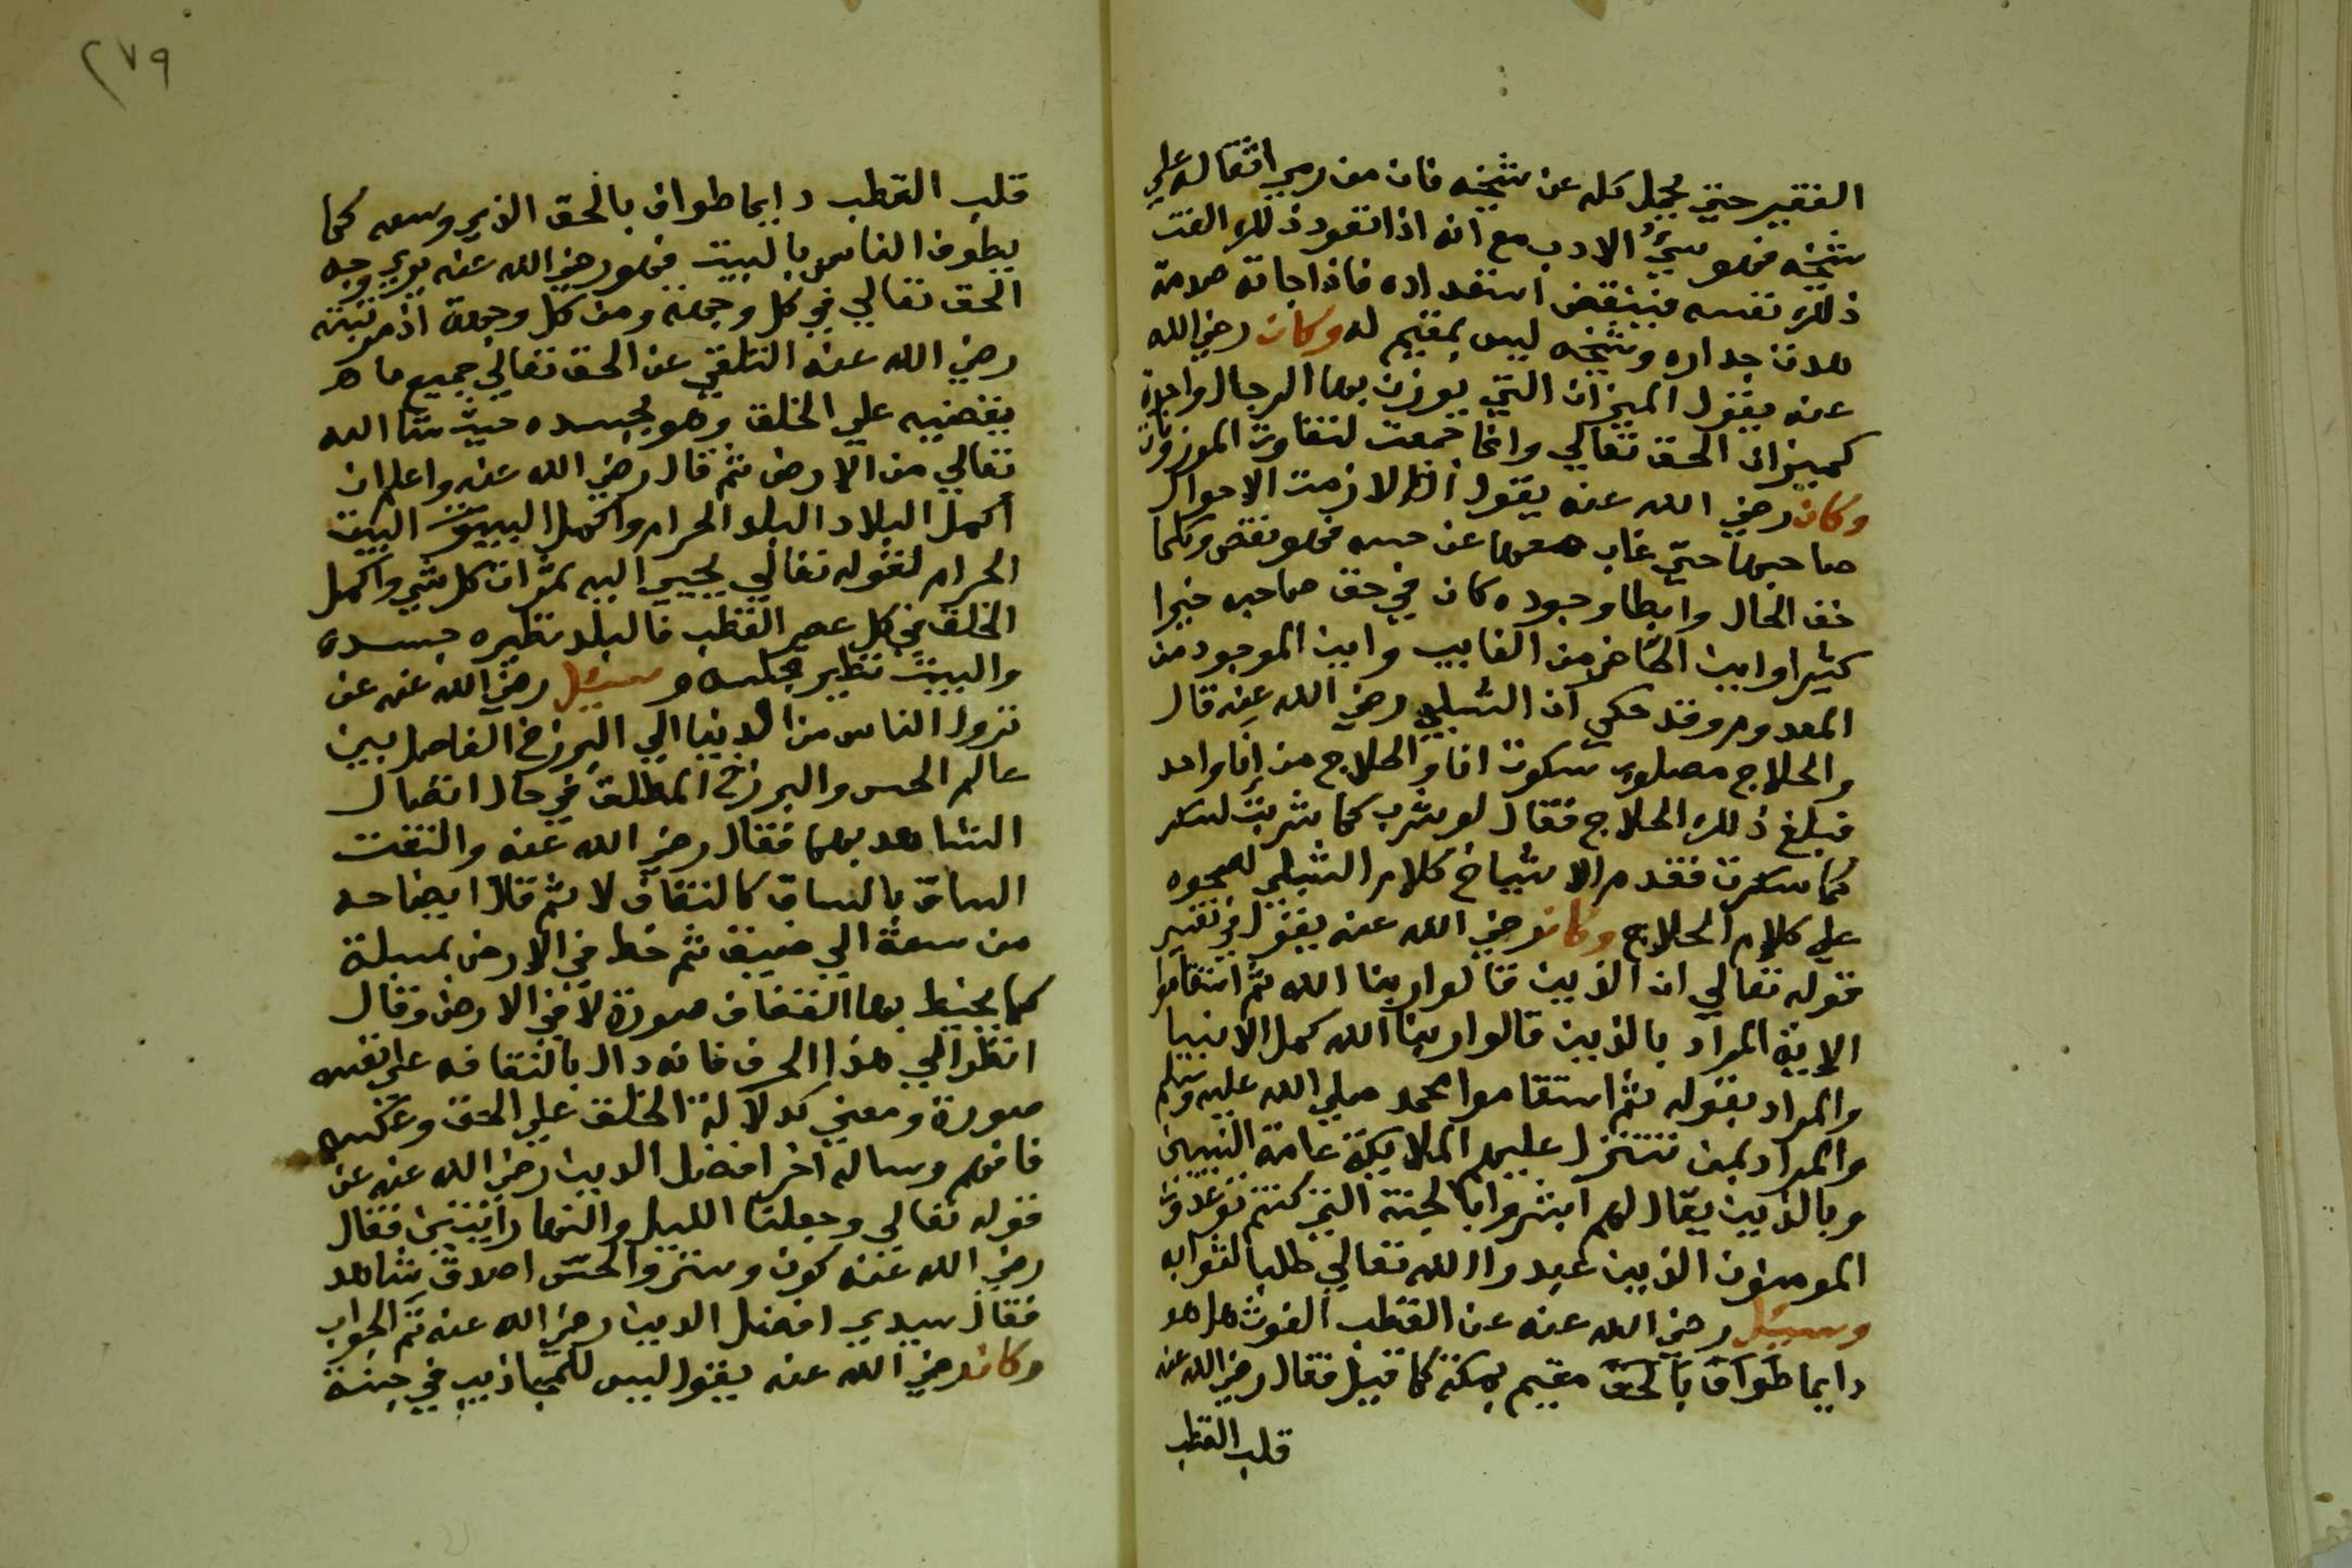 الفقير حتي يحمل كله عن شيخه فان من رمي اثقاله علي
شيخه فهو سيئ الادب مع انه اذا تعود ذلك الفت
ذلك نفسه فينقض استعداده فاذا جاته صدمة
هدت جداره وشيخه ليس بمقيم له وكان رضي الله
عنه يقول الميزان التي يوزن بها الرجال واحدة
كميزان الحق تعالي وانما جمعت لتفاوت الموزونات
وكان رضي الله عنه يقول اذا لازمت الاحوال
صاحبها حتي غاب معها عن حسه فهو نقص وكلما
خف الحال وابطا وجوده كان في حق صاحبه خيرا
كثيرا واين الحاضر من الغايب واين الموجود من
المعدوم وقد حكي ان الشبلي رضي الله عنه قال
والحلاج مصلوب سكرت انا والحلاج من انا واحد
فبلغ ذلك الحلاج فقال لو شرب كما شربت لسكر
كما سكرت فقدم الاشياخ كلام الشبلي لصحوه
علي كلام الحلاج وكان رضي الله عنه يقول في تفسير
قوله تعالي ان الذين قالوا ربنا الله ثم استقاموا
الاية المراد بالذين قالوا ربنا الله كمل الانبيا
والمراد بقوله ثم استقاموا محمد صلي الله عليه وسلم
والمراد بمن تتنزل عليهم الملايكة عامة النبيين
وبالذين يقال لهم ابشروا بالجنة التي كنتم توعدون
المومنون الذين عبدوا الله تعالي طلبا لثوابه
وسيئل رضي الله عنه عن القطب الغوث هل هو
دايما طواف بالحق مقيم بمكة كما قيل فقال رضي الله عنه
قلب القطب
٢٧٩
قلب القطب دايما طواف بالحق الذي وسعه كما
يطوف الناس بالبيت فهو رضي الله عنه يري وجه
الحق تعالي في كل وجهة ومن كل وجهة اذ مرتبته
رضي الله عنه التلقي عن الحق تعالي جميع ما هو
يفضيه علي الخلق وهو بجسده حيث شا الله
تعالي من الارض ثم قال رضي الله عنه واعلم ان
اكمل البلاد البلد الحرام واكمل البيوت البيت
الحرام لقوله تعالي يجبي اليه ثمرات كل شي واكمل
الخلق في كل عصر القطب فالبلد نظيره جسده
والبيت نظير قلبه وسيئل رضي الله عنه عن
نزول الناس من الدنيا الي البرزخ الفاصل بين
عالم الحس والبرزخ المطلق في حال اتصال
الشاهد بهما فقال رضي الله عنه والتفت
الساق بالساق كالتفاف لا ثم قال ايضا حد
من سعة الي ضيق ثم خط في الارض بمسلة
كما يخيط بها القفاف صورة لا في الارض وقال
انظر الي هذا الحرف فانه دال بالتفافه علي نفسه
صورة ومعني كدلالة الخلق علي الحق وعكسه
فافهم وساله اخر افضل الدين رضي الله عنه عن
قوله تعالي وجعلنا الليل والنهار ايتين فقال
رضي الله عنه كون وستر والحس اصدق شاهد
فقال سيدي افضل الدين رضي الله عنه تم الجواب
وكان رضي الله عنه يقول ليس للمجاذيب في جنة